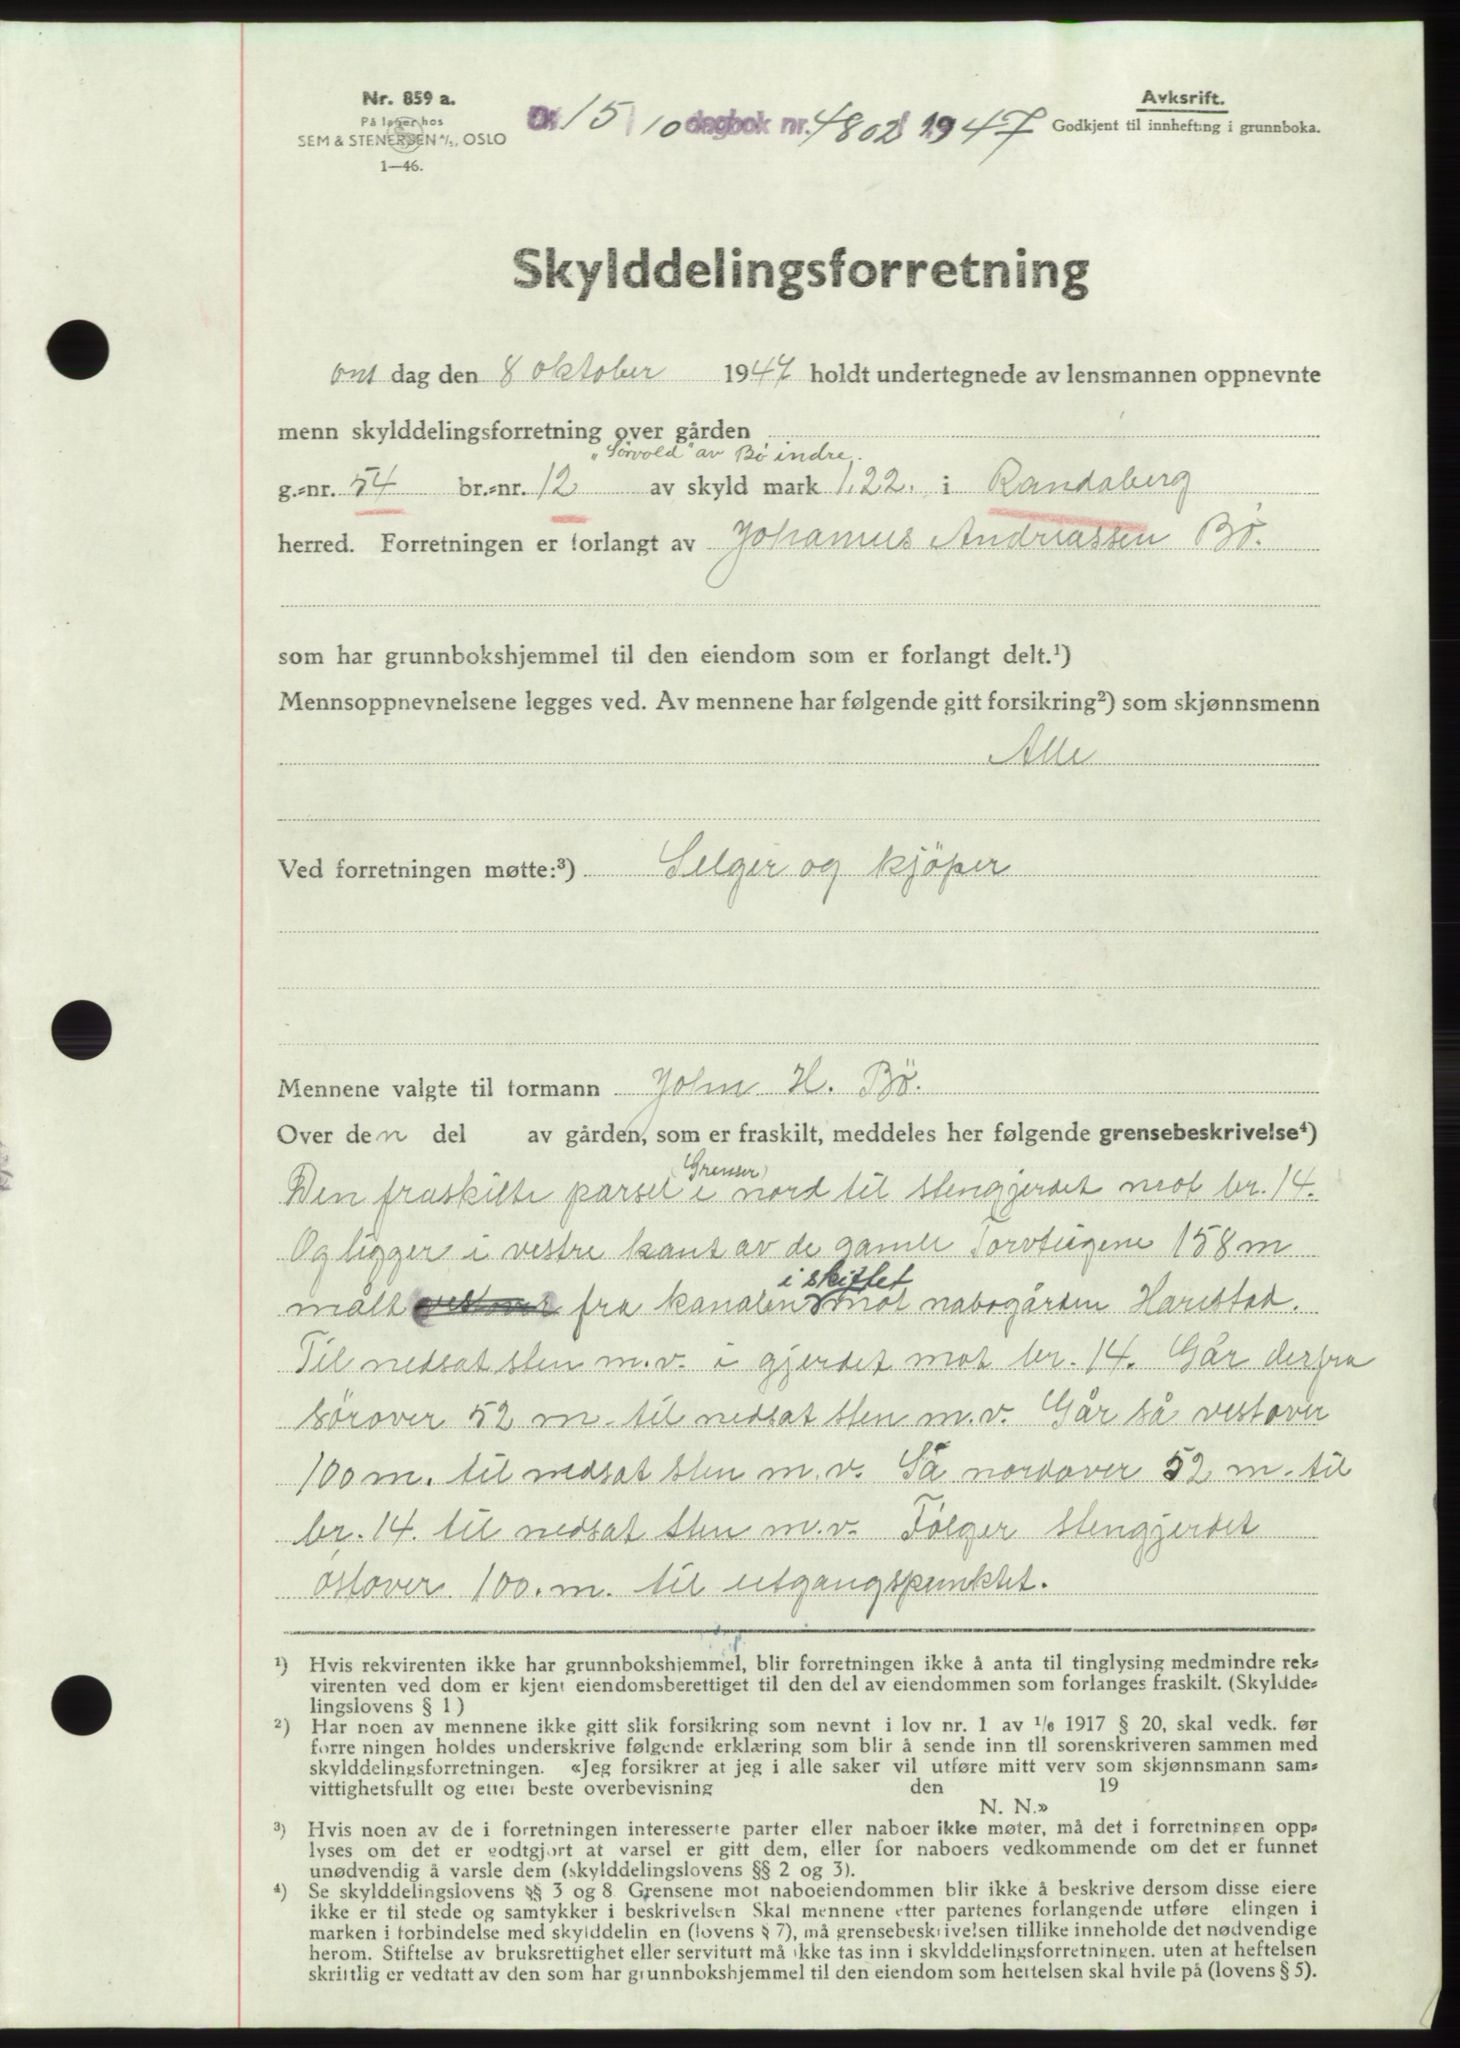 Nr. 859 a.
På lager hos
SEM & STENERSEN A/S, OSLO
1—46.
15/10 dagbok nr. 4802 1947
Avksrift.
Godkjent til innhefting i grunnboka.
Skylddelingsforretning
ons dag den 8 oktober 1947 holdt undertegnede av lensmannen oppnevnte
menn skylddelingsforretning over gården
"Sørvold" av Bø indre.
g.-nr. 54 br.-nr. 12 av skyld mark 1.22. i Randaberg
herred. Forretningen er forlangt av Johannes Andreassen Bø.
som har grunnbokshjemmel til den eiendom som er forlangt delt.¹)
Mennsoppnevnelsene legges ved. Av mennene har følgende gitt forsikring²) som skjønnsmenn
Alle
Ved forretningen møtte:³) Selger og kjöper
Mennene valgte til formann John H. Bö.
Over den del av gården, som er fraskilt, meddeles her følgende grensebeskrivelse⁴)
Grenser
Den fraskilte parsel i nord til stengjerdet mot br. 14.
Og ligger i vestre kant av de gamle Torvteigene 158 m
i skiftet
målt fra kanalen mot nabogården Harestad.
Til nedsat sten m.v. i gjerdet mot br. 14. Går derfra
sørover 52 m. til nedsat sten m.v. Går så vestover
100 m. til nedsat sten m.v. Så nordover 52 m. til
br. 14. til nedsat sten m.v. Følger stengjerdet
østover 100. m. til utgangspunktet.
¹) Hvis rekvirenten ikke har grunnbokshjemmel, blir forretningen ikke å anta til tinglysing medmindre rek-
virenten ved dom er kjent eiendomsberettiget til den del av eiendommen som forlanges fraskilt. (Skyldde-
lingslovens § 1)
²) Har noen av mennene ikke gitt slik forsikring som nevnt i lov nr. 1 av 1/6 1917 § 20, skal vedk. før
forre ningen holdes underskrive følgende erklæring som blir å sende inn til sorenskriveren sammen med
skylddelingsforretningen. «Jeg forsikrer at jeg i alle saker vil utføre mitt verv som skjønnsmann sam-
vittighetsfullt og etter beste overbevisning den 19
N. N.»
³) Hvis noen av de i forretningen interesserte parter eller naboer ikke møter, må det i forretningen opp-
lyses om det er godtgjort at varsel er gitt dem, eller for naboers vedkommende om det er funnet
unødvendig å varsle dem (skylddelingslovens §§ 2 og 3).
⁴) Se skylddelingslovens §§ 3 og 8. Grensene mot naboeiendommen blir ikke å beskrive dersom disse eiere
ikke er til stede og samtykker i beskrivelsen Skal mennene etter partenes forlangende utføre elingen i
marken i forbindelse med skylddelin en (lovens § 7), må grensebeskrivelsen tillike inneholde det nødvendige
herom. Stiftelse av bruksrettighet eller servitutt må ikke tas inn i skylddelingsforretningen. uten at heftelsen
skriftlig er vedtatt av den som har grunnbokshjemmel til den eiendom som heftelsen skal hvile på (lovens § 5).